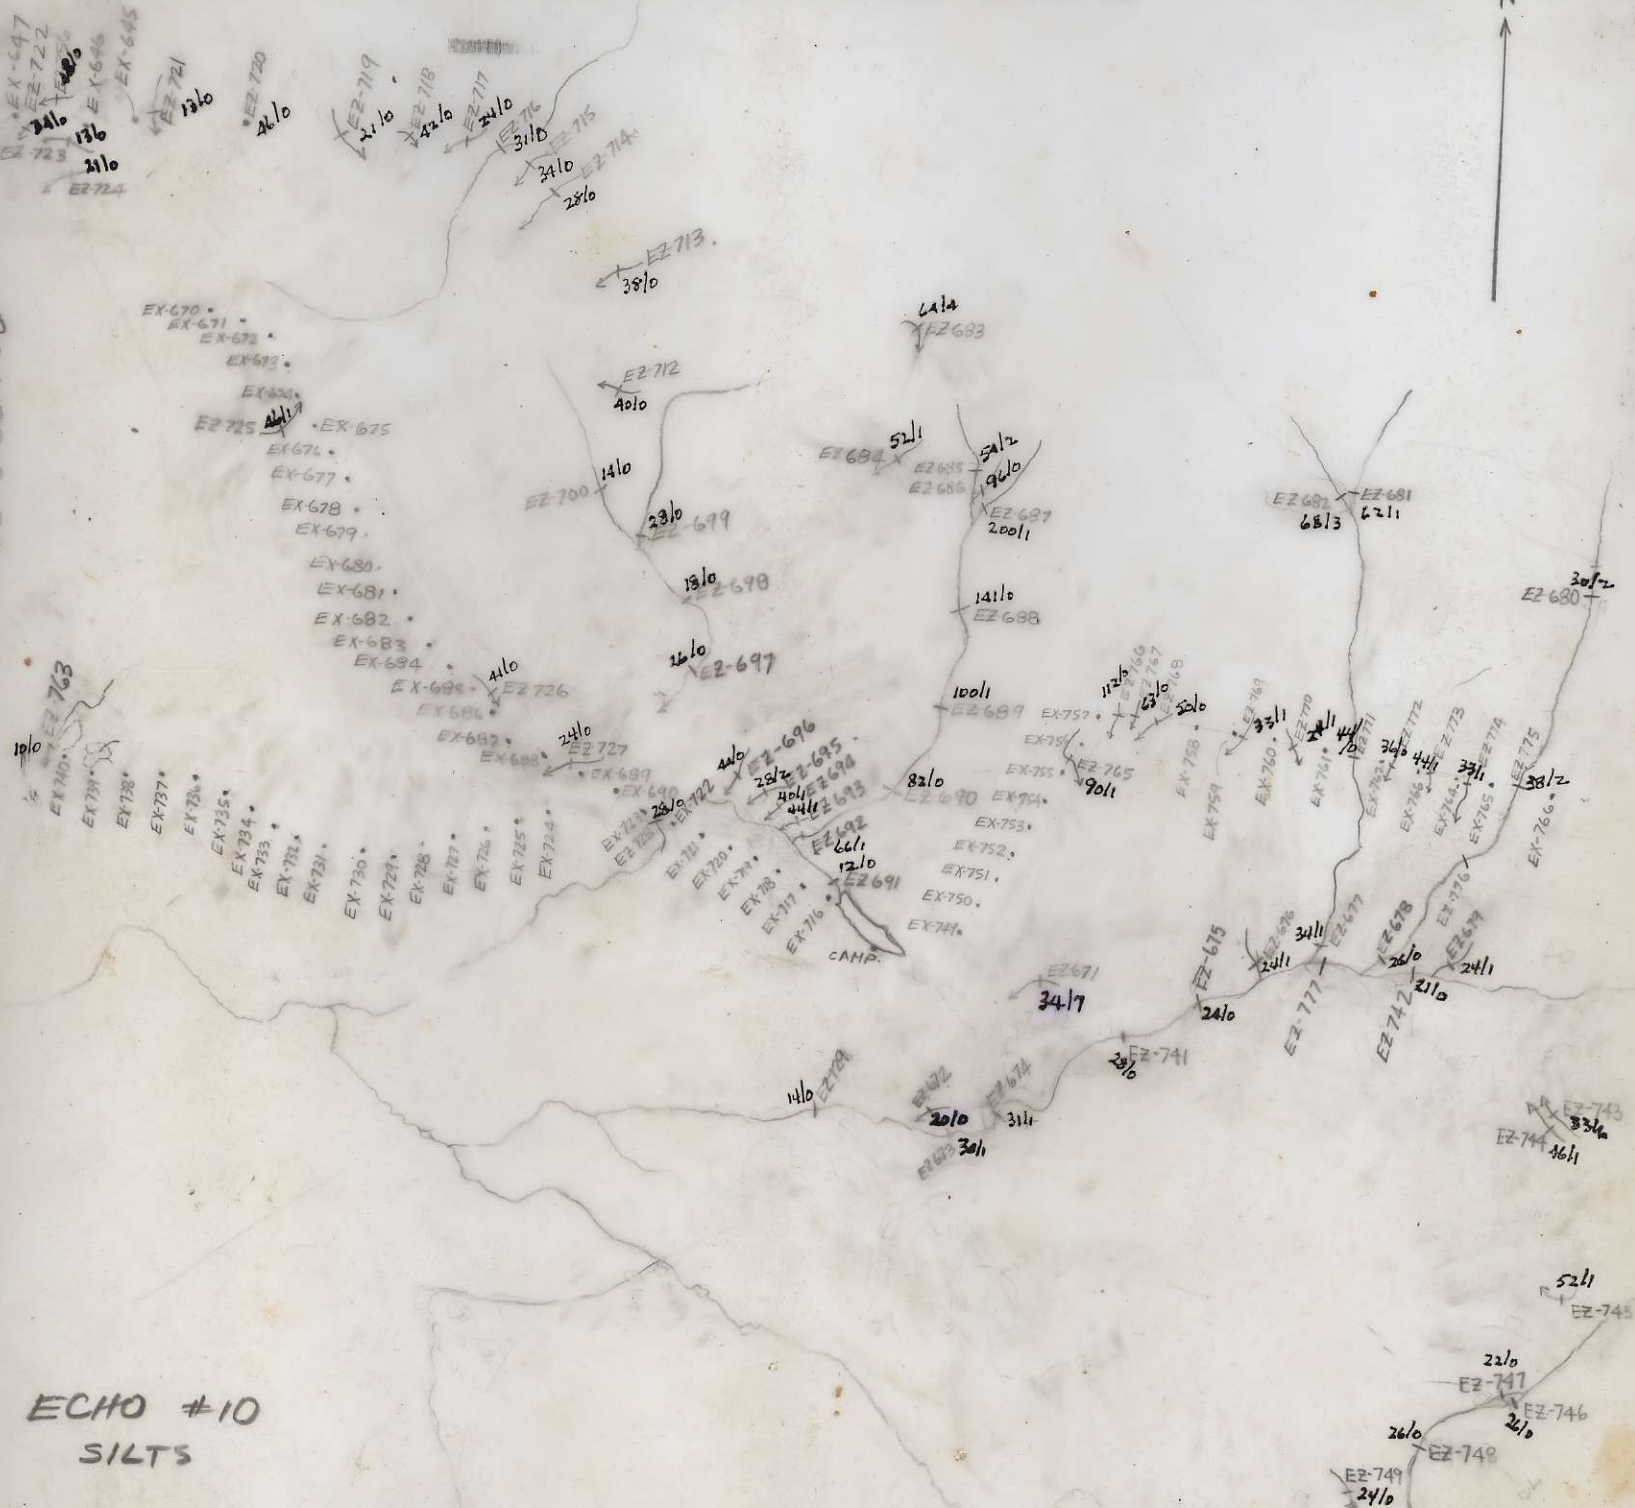 EX-647
EZ-722
EX-646
EX-645
EZ-721
13/0
EZ-720
46/0
EZ-719
21/0
EZ-718
42/0
EZ-717
24/0
EZ-716
31/0
EZ-715
34/0
EZ-714
28/0
34/0
EZ-723
21/0
EZ-724
EZ-713
38/0
EX-670
EX-671
EX-672
EX-673
EZ-725
46/1
EX-675
EX-676
EX-677
EX-678
EX-679
EX-680
EX-681
EX-682
EX-683
EX-684
EX-685
EX-686
EX-687
EX-688
EX-689
EX-690
44/0
EZ726
24/0
EZ727
EZ-712
40/0
14/0
EZ-700
28/0
EZ-699
18/0
EZ-698
26/0
EZ-697
64/4
EZ683
52/1
EZ684
54/2
EZ685
96/0
EZ686
EZ-687
200/1
141/0
EZ-688
100/1
EZ-689
82/0
EZ690
EZ682
68/3
EZ-681
62/1
30/2
EZ-680
EZ-763
10/0
EX-740
EX-739
EX-738
EX-737
EX-736
EX-735
EX-734
EX-733
EX-732
EX-731
EX-730
EX-729
EX-728
EX-727
EX-726
EX-725
EX-724
EX-723
EZ728
28/0
EX-722
EX-721
EX-720
EX-719
EX-718
EX-717
EX-716
44/0
EZ-696
28/2
EZ-695
40/1
EZ694
44/1
EZ693
EZ692
66/1
12/0
EZ691
CAMP.
EX-757
EX-755
EX-754
EX-753
EX-752
EX-751
EX-750
EX-749
112/0
EZ766
63/0
EZ767
50/0
EZ768
EZ-765
90/1
EX-758
EX-759
EZ-769
33/1
EX-760
EZ770
EX-761
EZ771
EX-762
36/0
EZ-772
44/1
EZ-773
EX-764
33/1
EZ-774
EX-765
EZ-775
38/2
EX-766
EZ-776
EZ-675
24/0
EZ-676
24/1
34/1
EZ-677
EZ-777
EZ-678
26/0
EZ-742
21/0
EZ679
24/1
EZ671
34/7
EZ-741
28/0
14/0
EZ729
EZ672
20/0
EZ673
30/1
EZ674
31/1
EZ-743
EZ-744
46/1
52/1
EZ-745
22/0
EZ-747
EZ-746
26/0
26/0
EZ-748
EZ-749
24/0
ECHO #10
SILTS